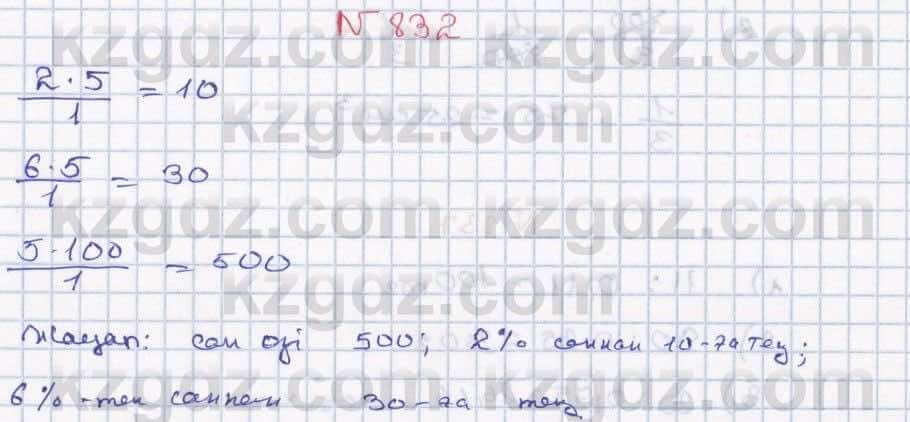 № 832
2·5/1 = 10
6·5/1 = 30
5·100/1 = 500
Жауап: сан өзі 500; 2% саннан 10-ға тең;
6%-тен саннан 30-ға тең.
kzgdz.com kzgdz.com
kzgdz.com
kzgdz.com kzgdz.com
kzgdz.com
kzgdz.com kzgdz.com